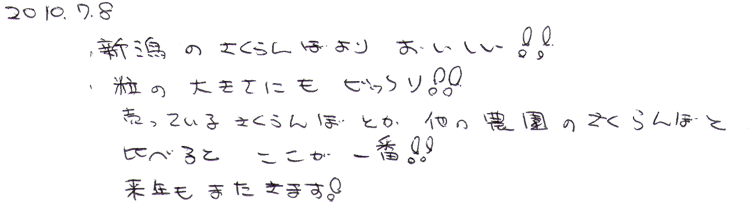 2010.7.8
・新潟のさくらんぼよりおいしい!!
・粒の大きさにもびっくり!!
売っているさくらんぼとか他の農園のさくらんぼと
比べるとここが一番!!
来年もまたきます!